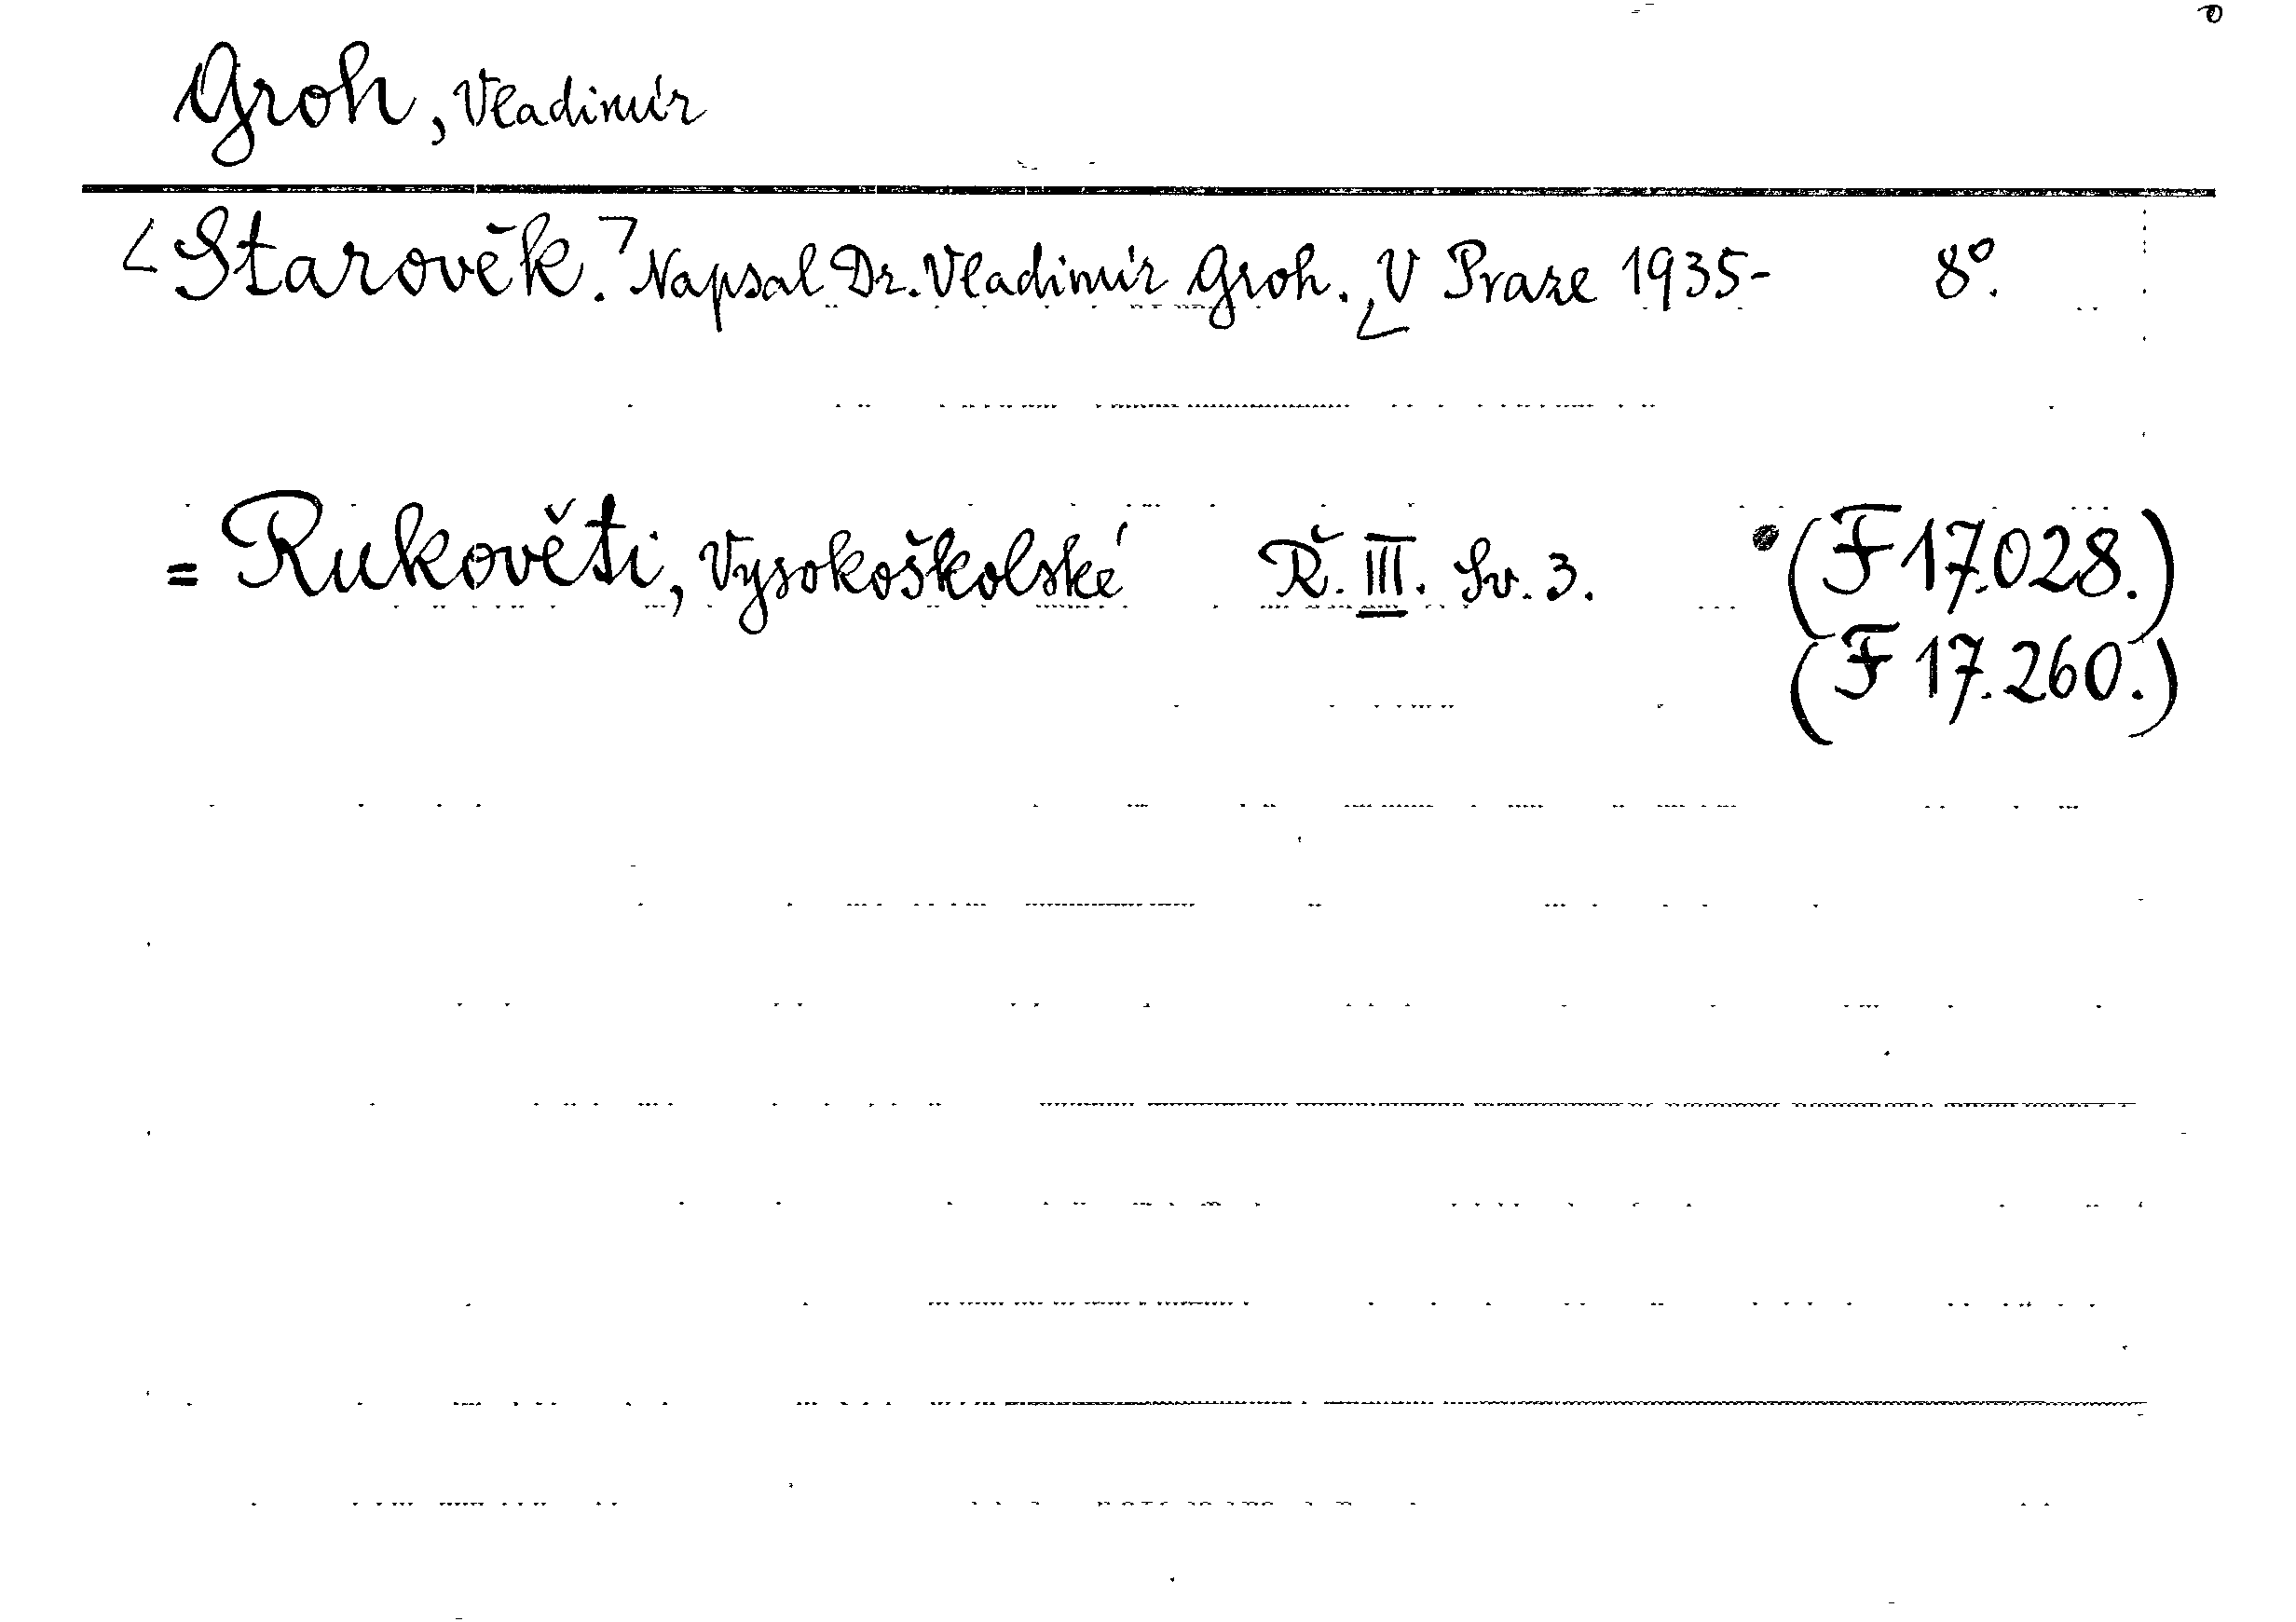 Groh, Vladimír
Starověk. Napsal Dr. Vladimír Groh. V Praze 1935- 8º.
= Rukověti, Vysokoškolské Ř. III. Sv. 3. (F 17.028.)
(F 17.260.)